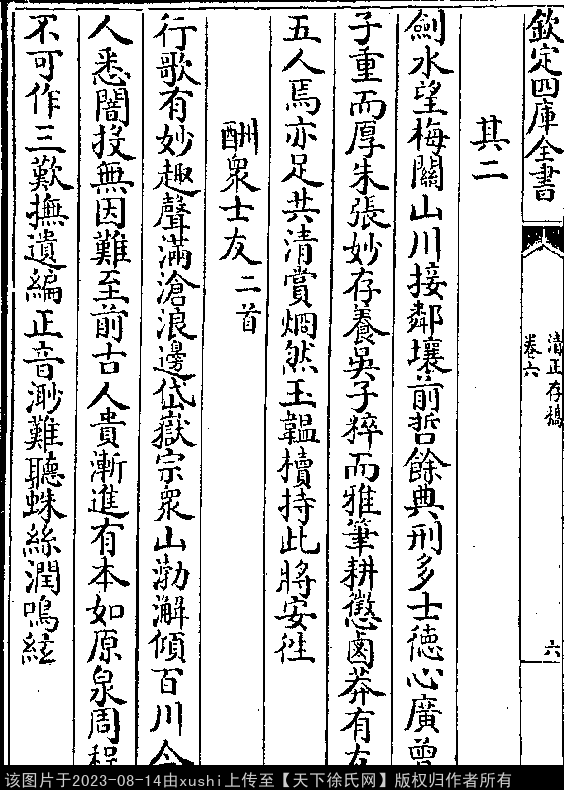 欽定四庫全書
清正存稿
卷六
六
其二
劍水望梅關山川接鄰壤前哲餘典刑多士徳心廣曾
子重而厚朱張妙存養吳子粹而雅筆耕懲鹵莽有友
五人焉亦足共清賞烱然玉韞櫝持此將安徃
酬衆士友二首
行歌有妙趣聲滿滄浪邊岱嶽宗衆山渤澥傾百川今
人悉闇投無因難至前古人貴漸進有本如原泉周程
不可作三歎撫遺編正音渺難聽蛛絲潤鳴絃
该图片于2023-08-14由xushi上传至【天下徐氏网】版权归作者所有